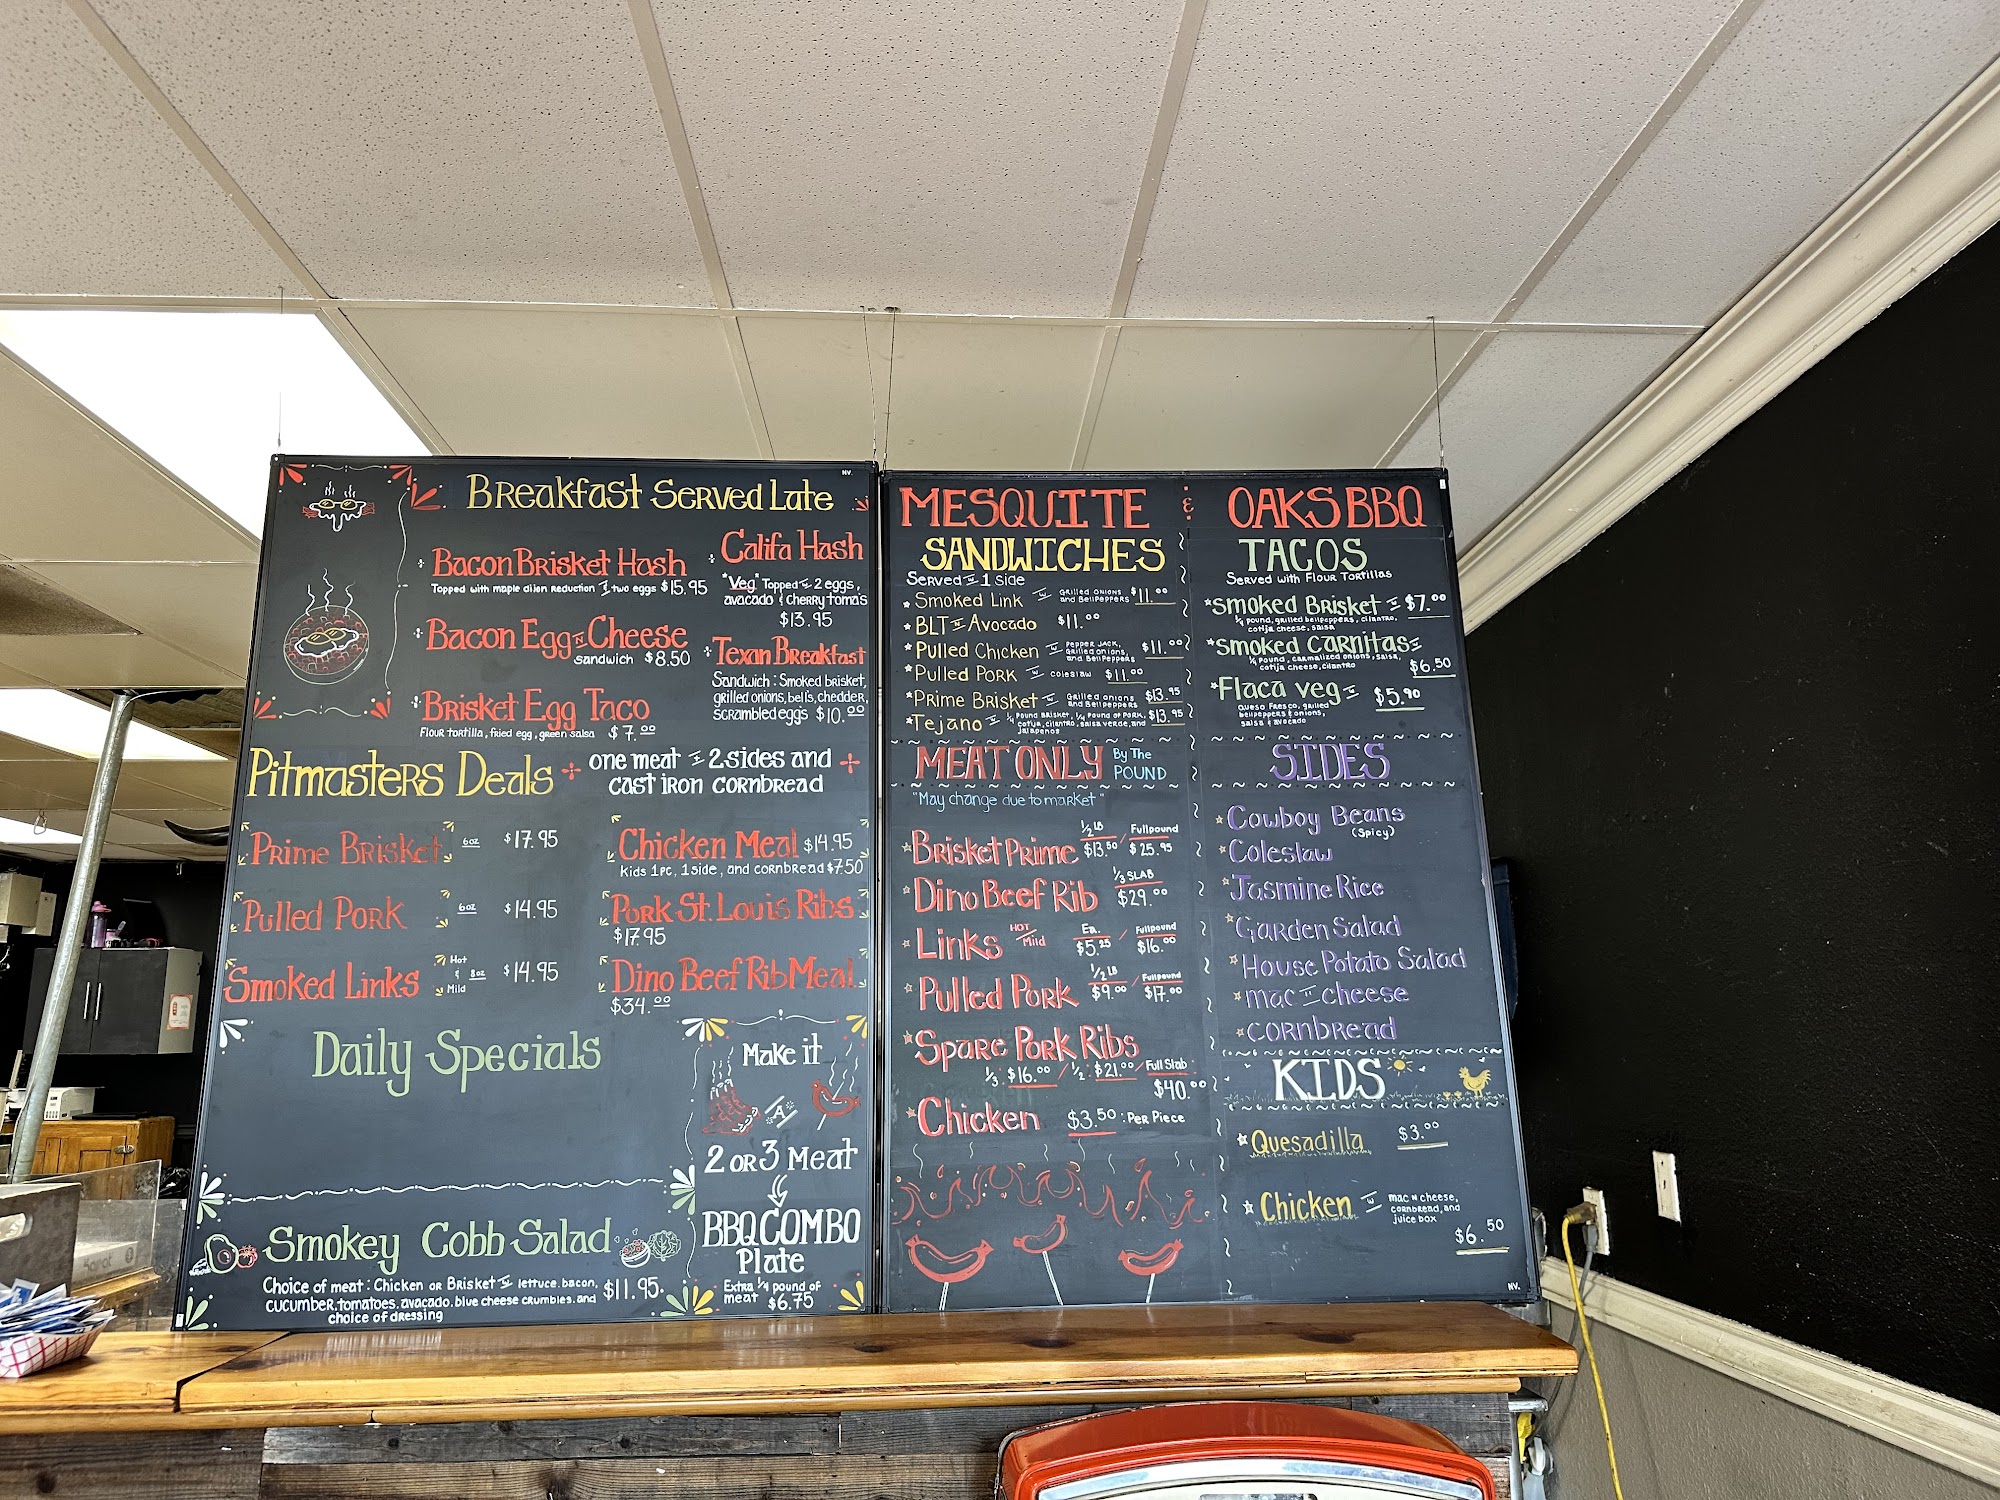 NV.
Breakfast Served Late
Bacon Brisket Hash
Topped with maple dijon reduction & two eggs $15.95
Califa Hash
"Veg" Topped w 2 eggs,
avocado & cherry tomas
$13.95
Bacon Egg n Cheese
sandwich $8.50
Texan Breakfast
Sandwich: Smoked brisket,
grilled onions, bells, chedder,
scrambled eggs $10.00
Brisket Egg Taco
Flour tortilla, fried egg, green salsa $7.00
Pitmasters Deals
one meat & 2 sides and
cast iron cornbread
Prime Brisket 6oz $17.95
Pulled Pork 6oz $14.95
Smoked Links Hot & Mild 8oz $14.95
Chicken Meal $14.95
kids 1pc, 1side, and cornbread $7.50
Pork St. Louis Ribs
$17.95
Dino Beef Rib Meal
$34.00
Daily Specials
Make it
A
2 or 3 Meat
BBQ COMBO
Plate
Extra 1/4 pound of
meat $6.75
Smokey Cobb Salad
Choice of meat: Chicken or Brisket w lettuce, bacon,
cucumber, tomatoes, avocado, blue cheese crumbles, and
choice of dressing
$11.95
MESQUITE & OAKS BBQ
SANDWICHES
Served w 1 side
Smoked Link w Grilled onions
and Bellpeppers $11.00
BLT w Avocado $11.00
Pulled Chicken w Pepper Jack,
Grilled onions,
and Bellpeppers $11.00
Pulled Pork w coleslaw $11.00
Prime Brisket w Grilled onions
and Bellpeppers $13.95
Tejano w 1/4 pound Brisket, 1/4 pound of Pork,
cotija, cilantro, salsa verde, and
jalapenos $13.95
MEAT ONLY By The
POUND
"May change due to market"
Brisket Prime 1/2 LB $13.50 / Fullpound $25.95
Dino Beef Rib 1/3 SLAB $29.00
Links HOT/Mild Ea. $5.25 / Fullpound $16.00
Pulled Pork 1/2 LB $9.00 / Fullpound $17.00
Spare Pork Ribs
1/3: $16.00 / 1/2: $21.00 / Full Slab:
$40.00
Chicken $3.50 : Per Piece
TACOS
Served with Flour Tortillas
Smoked Brisket w $7.00
1/4 pound, grilled bellpeppers, cilantro,
cotija cheese, salsa
Smoked Carnitas w
1/4 pound, carmalized onions, salsa,
cotija cheese, cilantro $6.50
Flaca veg w $5.90
Queso Fresco, grilled
bellpeppers & onions,
salsa & avocado
SIDES
Cowboy Beans
(Spicy)
Coleslaw
Jasmine Rice
Garden Salad
House Potato Salad
mac n cheese
cornbread
KIDS
Quesadilla $3.00
Chicken w mac n cheese,
cornbread, and
juice box
$6.50
NV.